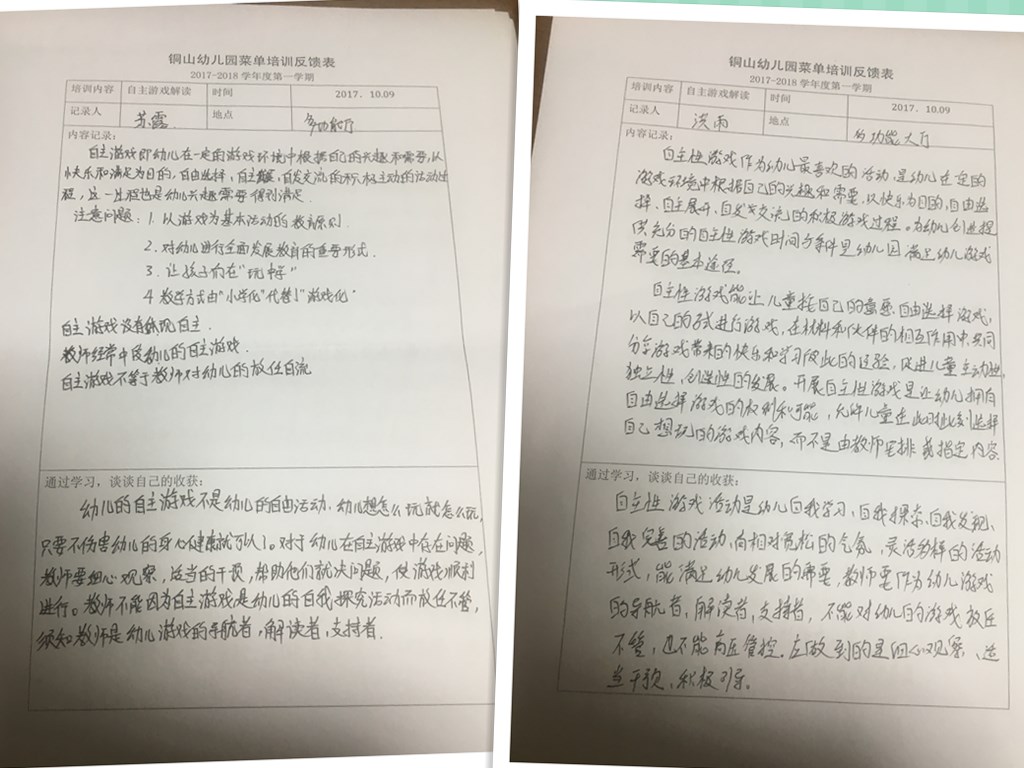 铜山幼儿园菜单培训反馈表
2017-2018 学年度第一学期
培训内容 自主游戏解读 时间 2017. 10.09
记录人 苏露 地点 多功能厅
内容记录:
自主游戏即幼儿在一定的游戏环境中根据自己的兴趣和需要,以
快乐和满足为目的,自由选择、自主展、自发交流的积极主动的活动过
程,这一过程也是幼儿兴趣需要得到满足.
注意问题: 1. 以游戏为基本活动的教育原则.
2. 对幼儿进行全面发展教育的重要形式.
3. 让孩子们在"玩中学"
4 教学方式由"小学化"代替了"游戏化"
自主游戏没有体现自主.
教师经常中段幼儿的自主游戏.
自主游戏不等于教师对幼儿的放任自流
通过学习,谈谈自己的收获:
幼儿的自主游戏不是幼儿的自由活动.幼儿想怎么玩就怎么玩,
只要不伤害幼儿的身心健康就可以了。对于幼儿在自主游戏中存在问题,
教师要细心观察,适当的干预,帮助他们就决问题,使游戏顺利
进行。教师不能因为自主游戏是幼儿的自我探究活动而放任不管,
须知教师是幼儿游戏的导航者,解读者,支持者.
铜山幼儿园菜单培训反馈表
2017-2018 学年度第一学期
培训内容 自主游戏解读 时间 2017. 10.09
记录人 淡雨 地点 多功能大厅
内容记录:
自主性游戏作为幼儿最喜欢的活动,是幼儿在一定的
游戏环境中根据自己的兴趣和需要,以快乐为目的,自由选
择、自主展开、自发交流的积极游戏过程。为幼儿创造提
供充分的自主性游戏时间与条件是幼儿园满足幼儿游戏
需要的基本途径。
自主性游戏能让儿童按自己的意愿自由选择游戏,
以自己的方式进行游戏,在材料和伙伴的相互作用中,共同
分享游戏带来的快乐和学习彼此的经验,促进儿童主动性,
独立性,创造性的发展。开展自主性游戏是让幼儿拥有
自由选择游戏的权利和可能,允许儿童在此时此刻选择
自己想玩的游戏内容,而不是由教师安排或指定内容
通过学习,谈谈自己的收获:
自主性游戏活动是幼儿自我学习、自我探索、自我发现、
自我完善的活动,有相对宽松的气氛,灵活多样的活动
形式,能满足幼儿发展的需要,教师要作为幼儿游戏
的导航者,解读者,支持者,不能对幼儿的游戏放任
不管,也不能高压管控.应做到的是细心观察、适
当干预、积极引导。